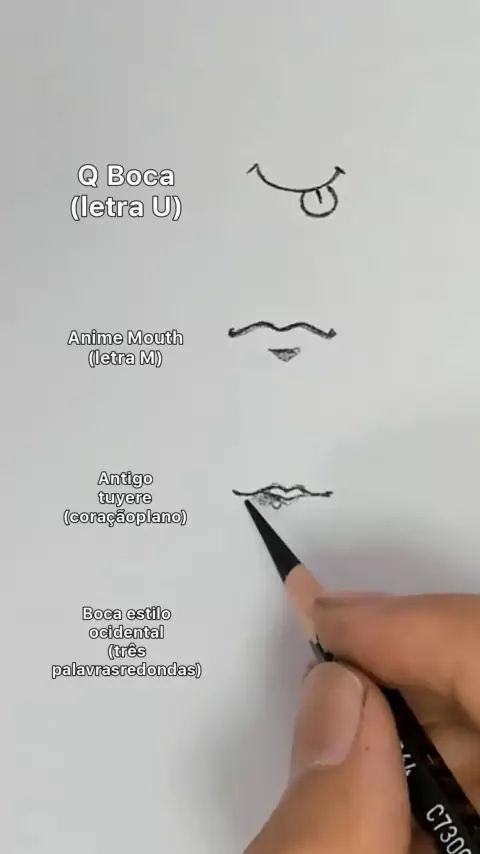 Q Boca
(letra U)
Anime Mouth
(letra M)
Antigo
tuyere
(coraçãoplano)
Boca estilo
ocidental
(três
palavrasredondas)
C730